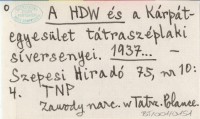 0
A HDW és a Kárpát-
egyesület tátraszéplaki
síversenyei. 1937... –
Szepesi Hiradó 75, nr 10:
4. TNP
zawody narc. w Tatrz. Polance.